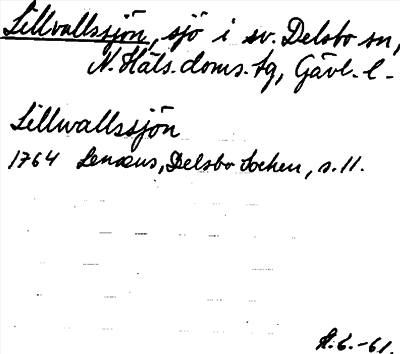 Lillvallssjön, sjö i sv. Delsbo sn,
N. Häls. doms. tg, Gävl. l.
Lillwallssjön
1764 Lenæus, Delsbo Sochen, s. 11.
-61.